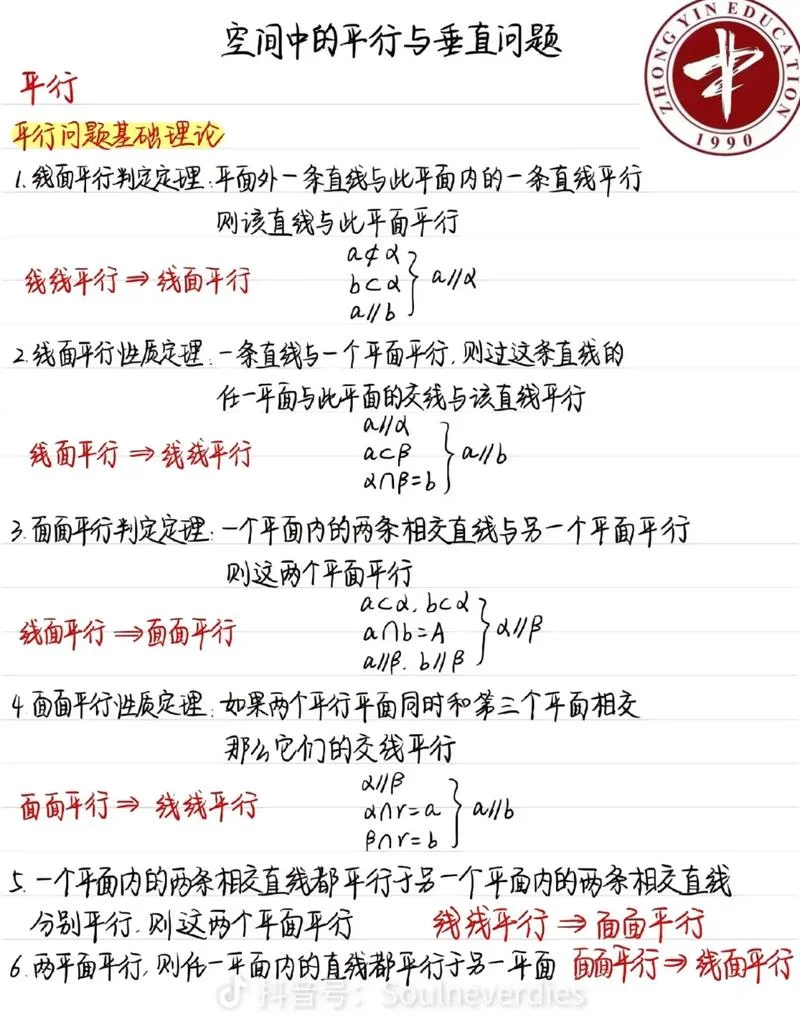 空间中的平行与垂直问题
ZHONGYIN EDUCATION
中
1990
平行
平行问题基础理论
1.线面平行判定定理:平面外一条直线与此平面内的一条直线平行
则该直线与此平面平行
a⊄α
线线平行⇒线面平行 b⊂α } a∥α
a∥b
2.线面平行性质定理:一条直线与一个平面平行,则过这条直线的
任一平面与此平面的交线与该直线平行
a∥α
线面平行⇒线线平行 a⊂β } a∥b
α∩β=b
3.面面平行判定定理:一个平面内的两条相交直线与另一个平面平行
则这两个平面平行
a⊂α,b⊂α
线面平行⇒面面平行 a∩b=A } α∥β
a∥β.b∥β
4 面面平行性质定理:如果两个平行平面同时和第三个平面相交
那么它们的交线平行
α∥β
面面平行⇒线线平行 α∩r=a } a∥b
β∩r=b
5.一个平面内的两条相交直线都平行于另一个平面内的两条相交直线
分别平行,则这两个平面平行 线线平行⇒面面平行
6.两平面平行,则任一平面内的直线都平行于另一平面 面面平行⇒线面平行
抖音号:Soulneverdies